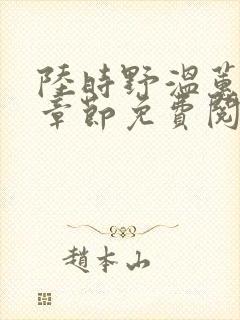 陸時野溫蔥
章節免費閱
趙本山